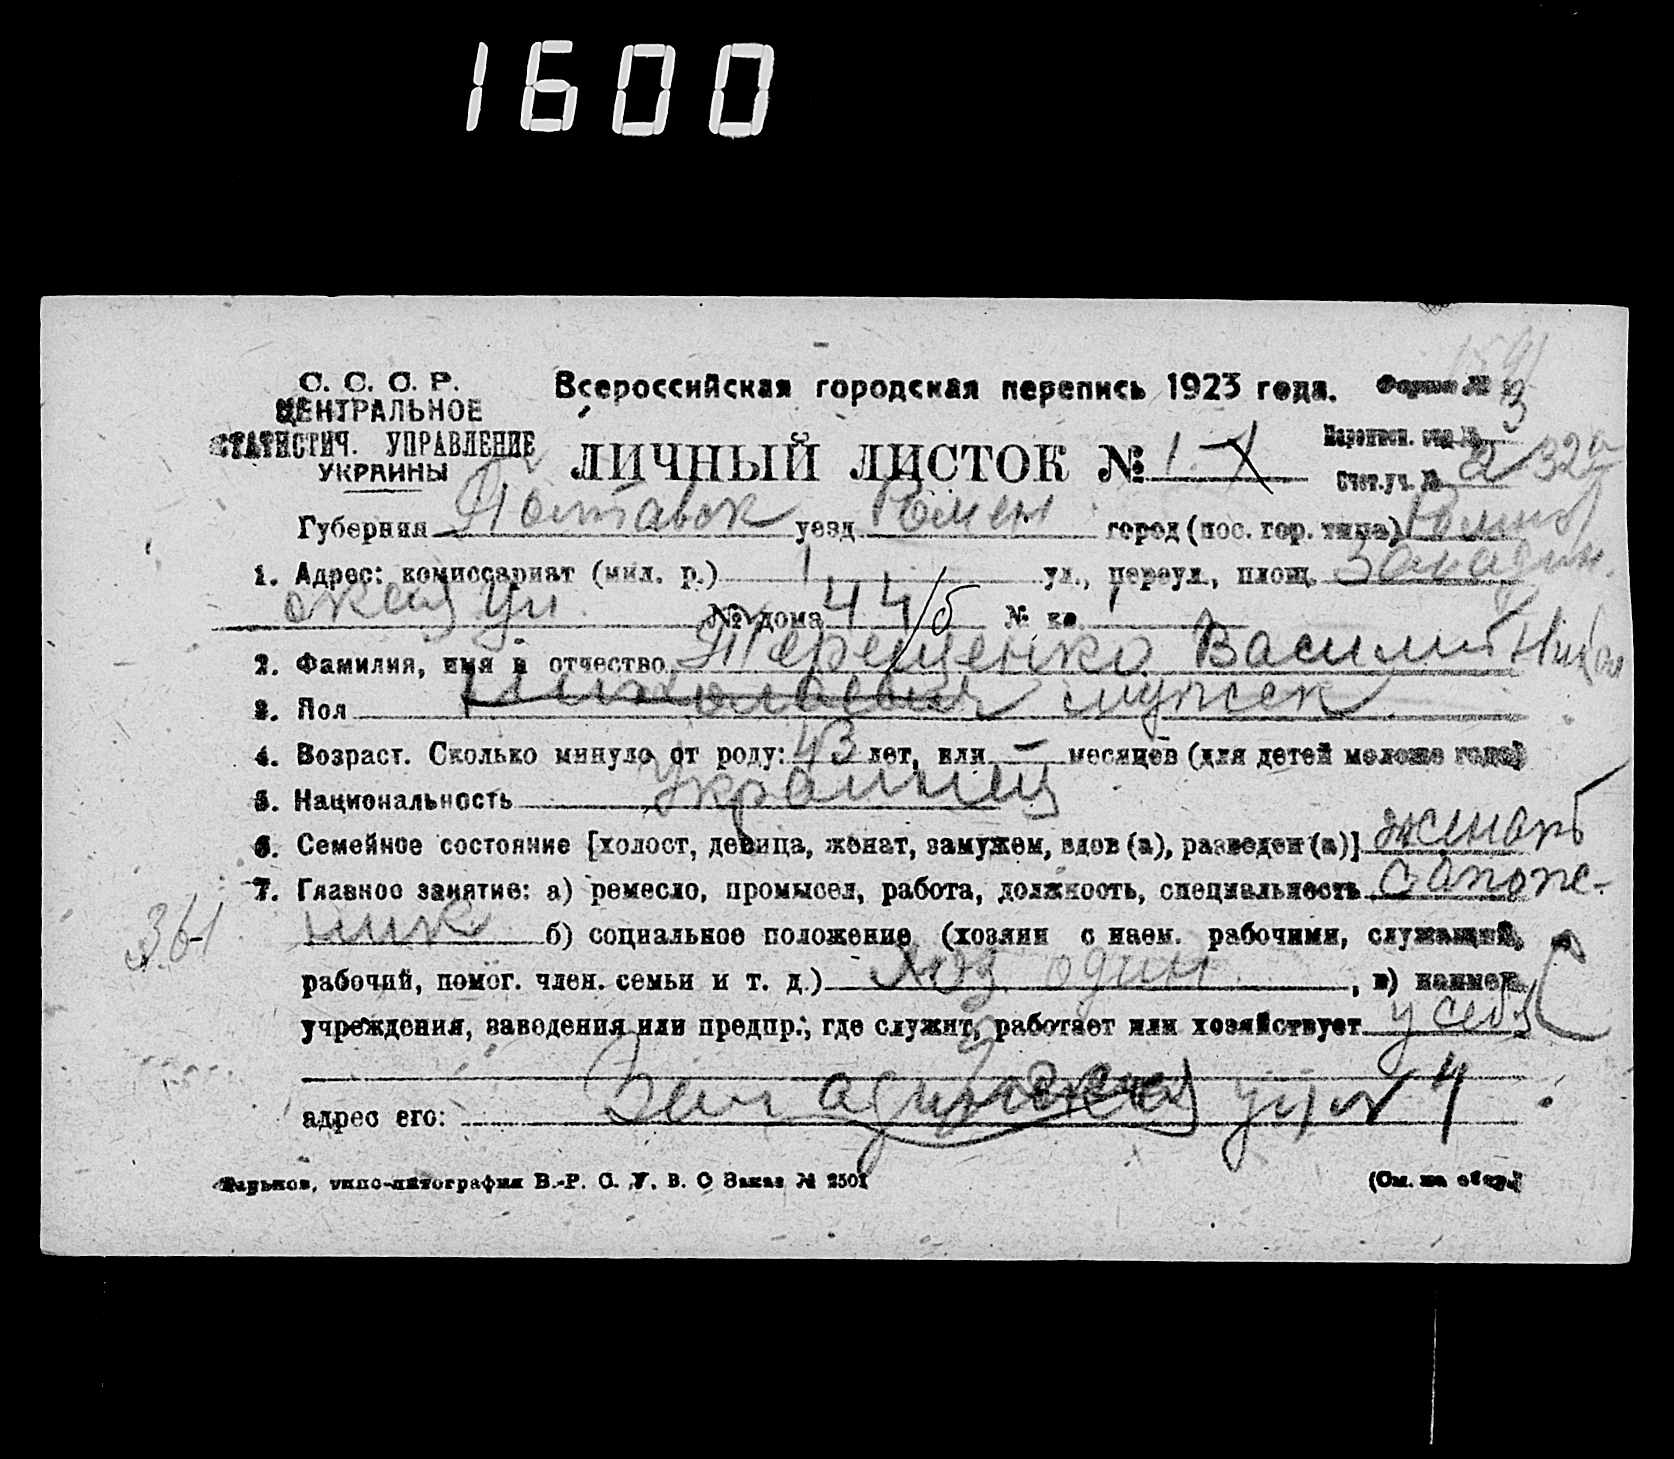 1600
С. С. С. Р.
ЦЕНТРАЛЬНОЕ
СТАТИСТИЧ. УПРАВЛЕНИЕ
УКРАИНЫ
Всероссийская городская перепись 1923 года. Форма № 3
ЛИЧНЫЙ ЛИСТОК № 1.
Переписн. отд. №
Счет. уч. № 2 32а
Губерния Полтавск уезд Ромен город (пос. гор. типа) Ромны
1. Адрес: комиссариат (мил. р.) 1 ул., переул., площ.
ская ул № дома 44/б № кв. 1
2. Фамилия, имя и отчество Терещенко Василий Никол
3. Пол Николаевич мужск
4. Возраст. Сколько минуло от роду: 43 лет, или — месяцев (для детей моложе года)
5. Национальность Украинец
6. Семейное состояние [холост, девица, женат, замужем, вдов (а), разведен (а)] женатъ
7. Главное занятие: а) ремесло, промысел, работа, должность, специальность сапож-
361 ник б) социальное положение (хозяин с наем. рабочими, служащий,
рабочий, помог. член. семьи и т. д.) хоз один, в) наимен.
учреждения, заведения или предпр., где служит, работает или хозяйствует у себя
адрес его: ул № 4
Харьков, типо-литография В.-Р. С. У. В. О Заказ № 2501 (См. на обор.)